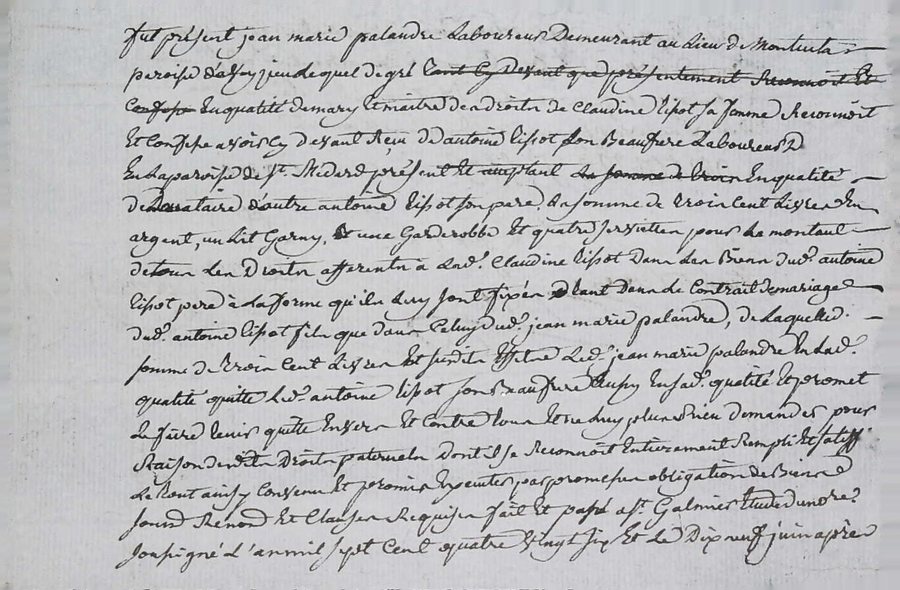 fut présent jean marie palandre Laboureur Demeurant au Lieu de
paroise d'avey jeu Lequel de gré Cent Cy Devant que présentement Reconnoit Et
Confesse En qualité de mary Et maitre des droits de Claudine lipot sa femme Reconnoit
Et Confesse avoir Cy devant Reçu D'antoine lipot son Beaufrere Laboureur D
En La paroise de St. Medard présent Et aceptant La somme de trois En qualité
de Donataire d'autre antoine lipot son pere, La somme de trois Cent Livres En
argent, un Lit Garny, Et une Garderobbe Et quatre serviettes pour Le montant
de tous Les Droits afferents à Lad. Claudine lipot Dans Les Biens dud. antoine
lipot pere à La forme qu'ils Luy sont fixés tant Dans Le Contrait de mariage
dud. antoine lipot fils que dans Celuy dud. jean marie palandre, de Laquelle
somme de trois Cent Livres Et susdits Effets Led. jean marie palandre En Lad.
qualité quitte Led. antoine lipot son Beaufrere Aussy En sad. qualité Et promet
Le faire tenir quitte Envers Et Contre tous Et ne Luy plus Rien demander pour
Raison desdits Droits paternels Dont il se Reconnoit Entierement Rempli Et satisf.
Le tout ainsy Convenu Et promis Executer par promesses obligation de Biens
soumis Renond Et Clauses Requises fait Et passé a St. Galmier Etude du notre.
soussigné L'an mil sept Cent quatre vingt six Et Le Dix neuf juin après